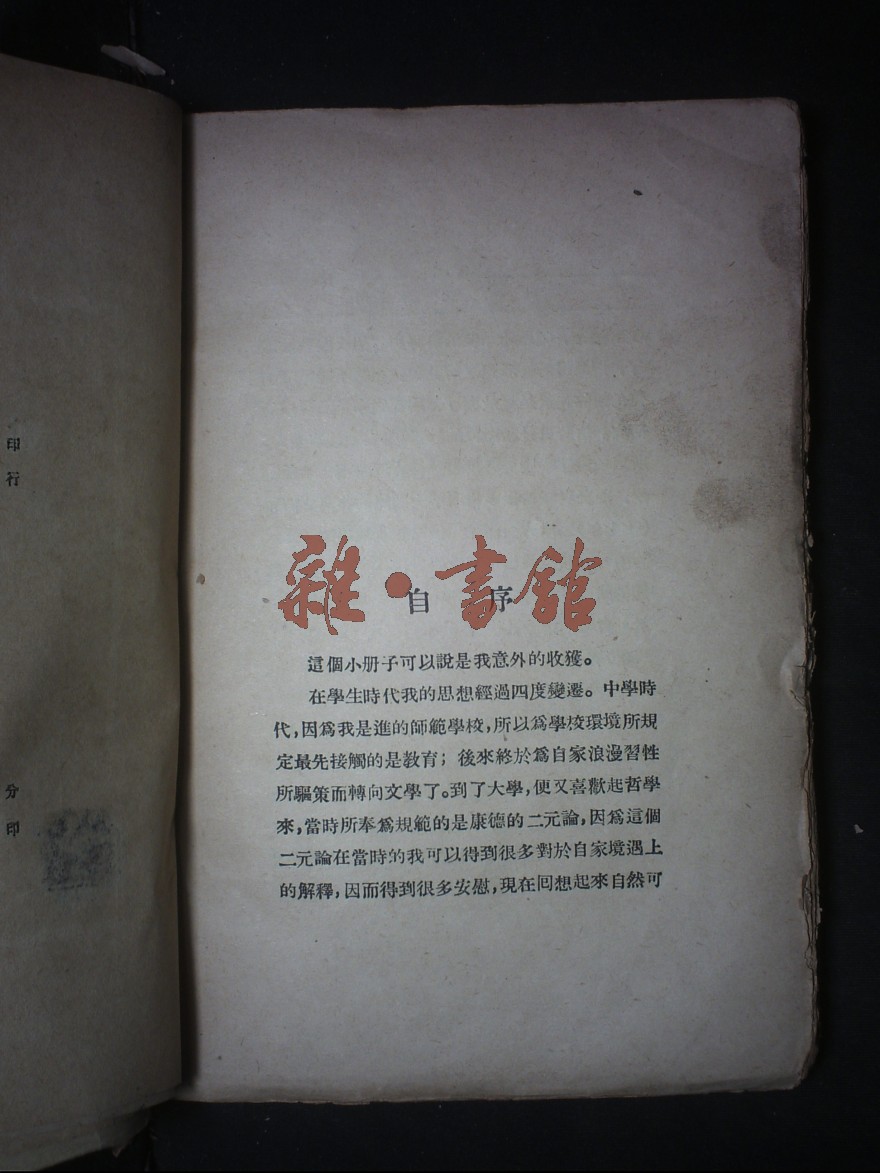 印行
分
印
雜·書館
自序
這個小册子可以說是我意外的收獲。
在學生時代我的思想經過四度變遷。中學時
代，因爲我是進的師範學校，所以爲學校環境所規
定最先接觸的是教育；後來終於爲自家浪漫習性
所驅策而轉向文學了。到了大學，便又喜歡起哲學
來，當時所奉爲規範的是康德的二元論，因爲這個
二元論在當時的我可以得到很多對於自家境遇上
的解釋，因而得到很多安慰，現在囘想起來自然可